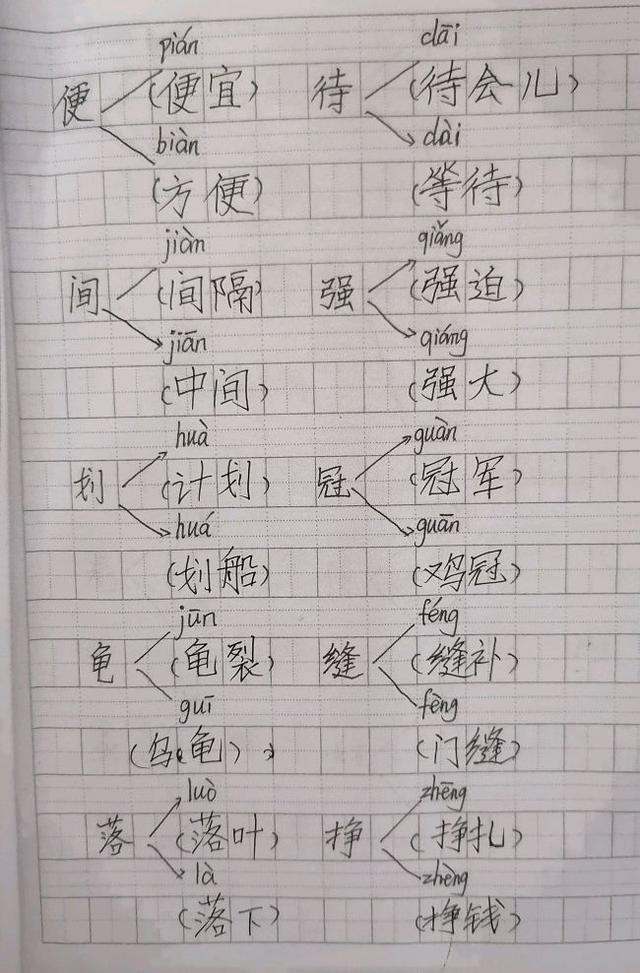 pián dāi
便 (便宜) 待 (待会儿)
biàn dài
(方便) (等待)
jiàn qiǎng
间 (间隔) 强 (强迫)
jiān qiáng
(中间) (强大)
huà guàn
划 (计划) 冠 (冠军)
huá guān
(划船) (鸡冠)
jūn féng
龟 (龟裂) 缝 (缝补)
guī fèng
(乌龟) (门缝)
luò zhēng
落 (落叶) 挣 (挣扎)
là zhèng
(落下) (挣钱)